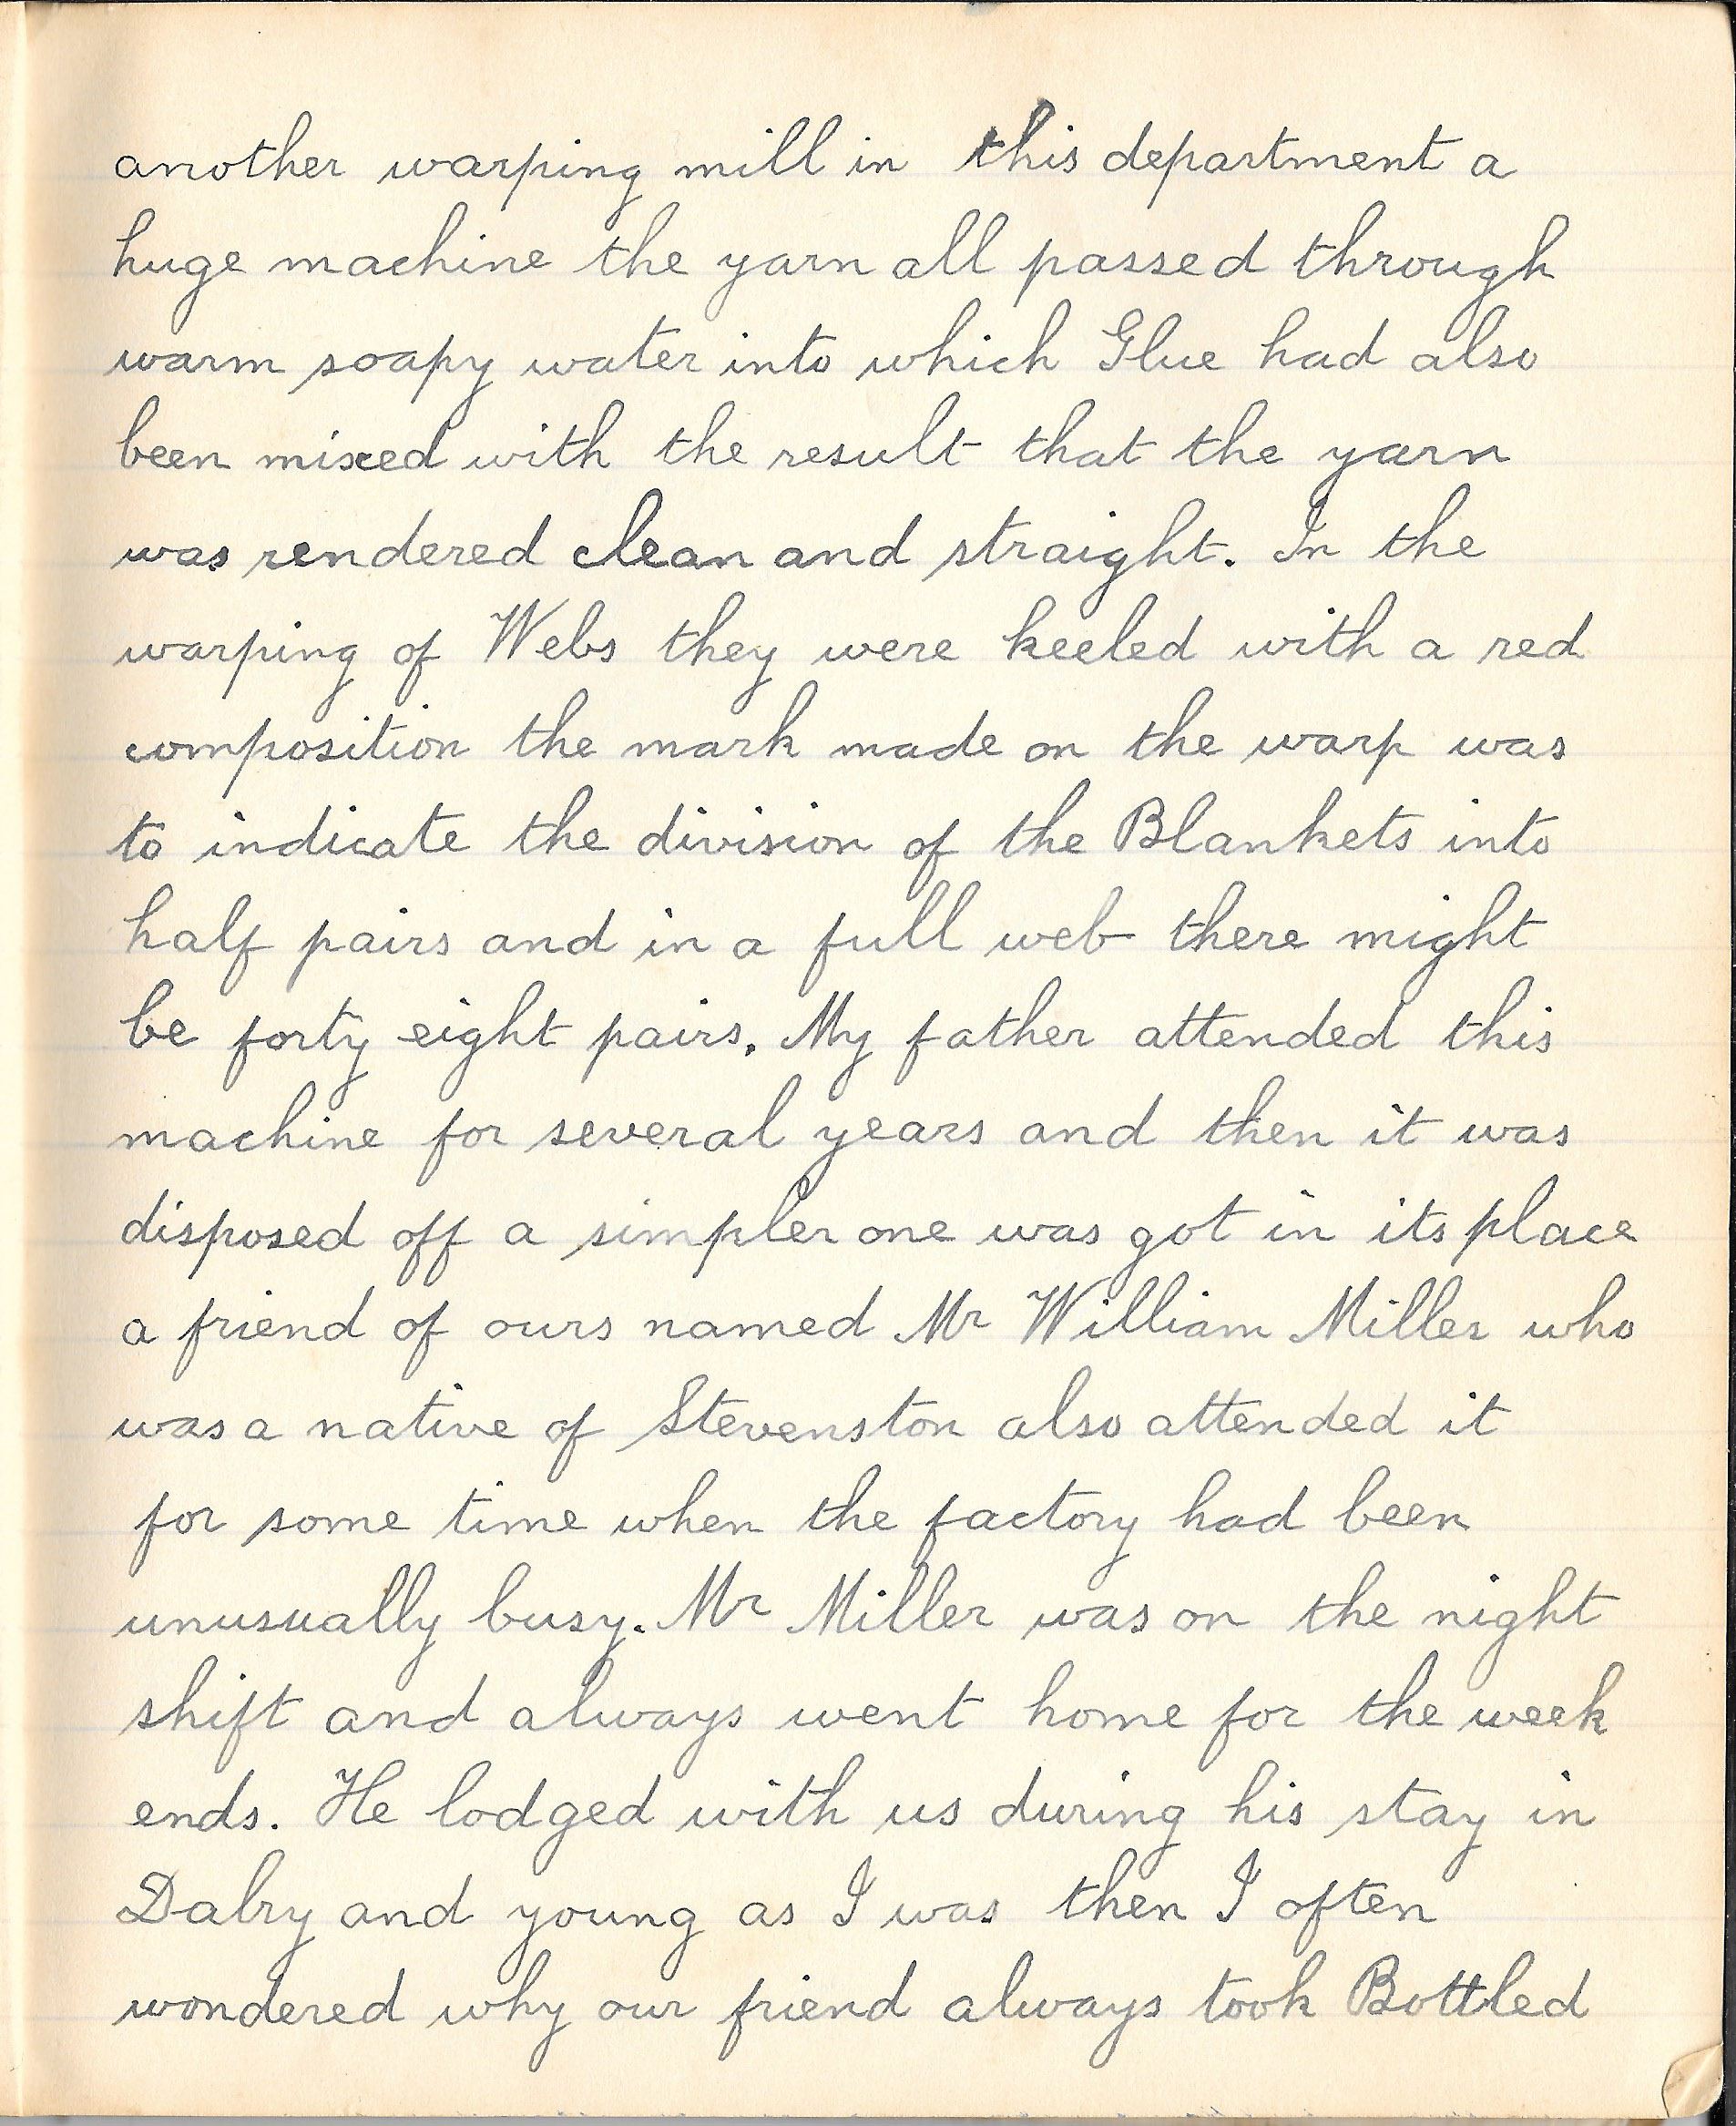 another warping mill in this department a
huge machine the yarn all passed through
warm soapy water into which Glue had also
been mixed with the result that the yarn
was rendered clean and straight. In the
warping of Webs they were keeled with a red
composition the mark made on the warp was
to indicate the division of the Blankets into
half pairs and in a full web there might
be forty eight pairs. My father attended this
machine for several years and then it was
disposed off a simpler one was got in its place
a friend of ours named Mr William Miller who
was a native of Stevenston also attended it
for some time when the factory had been
unusually busy. Mr Miller was on the night
shift and always went home for the week
ends. He lodged with us during his stay in
Dalry and young as I was then I often
wondered why our friend always took Bottled